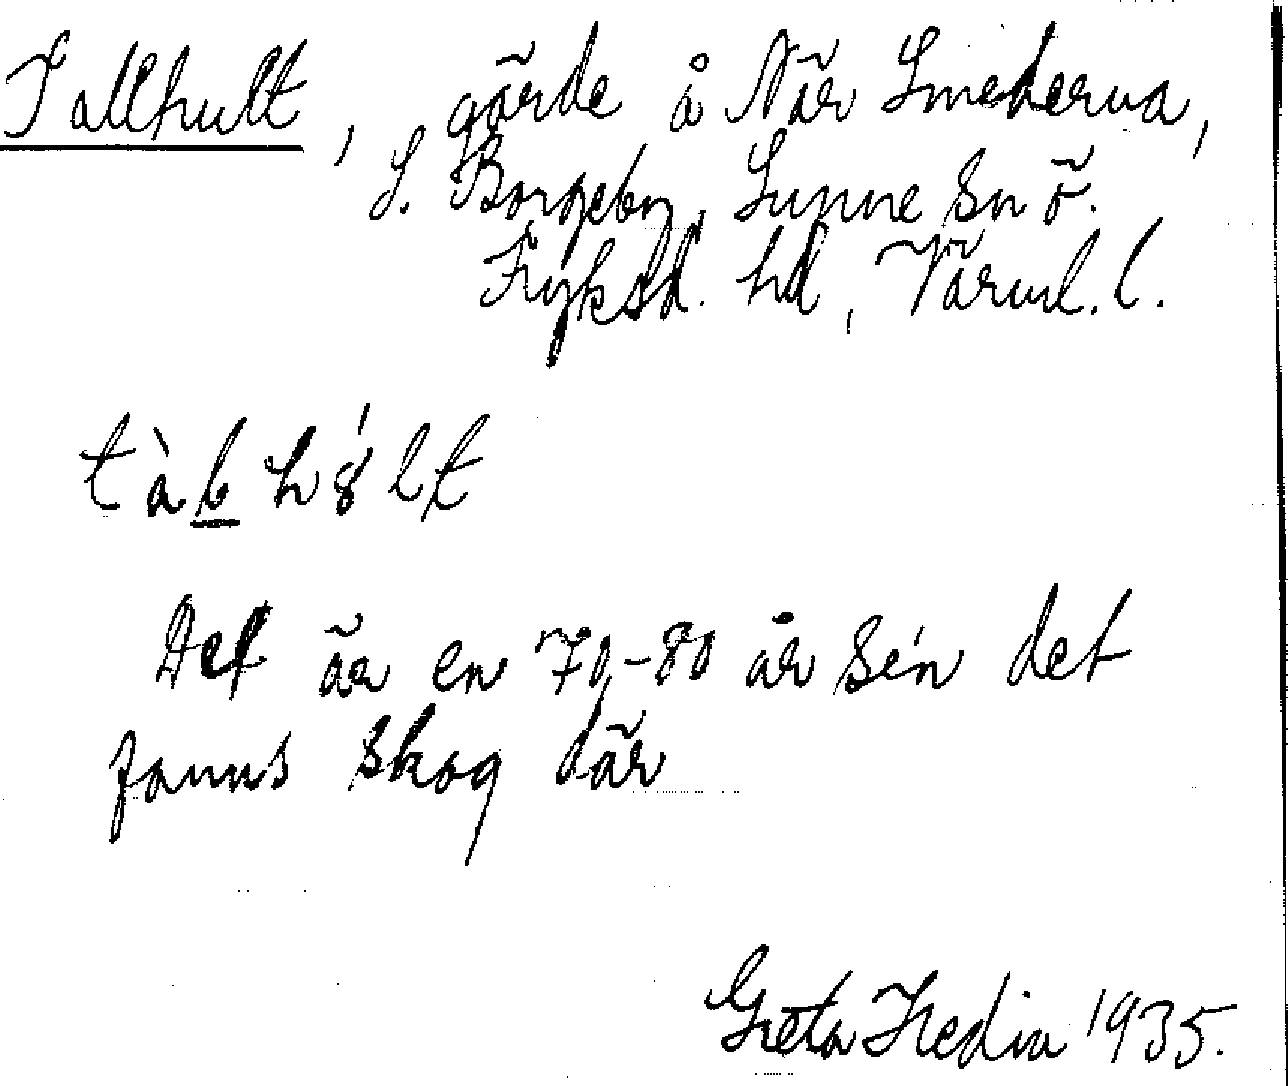 Tallhult, gärde å När Smederna,
S. Borgeby, Sunne sn ö.
Fryksd. hd, Värml. l.
tàḻhút
Det är en 70-80 år se'n det
fanns skog där
Greta Hedin 1935.